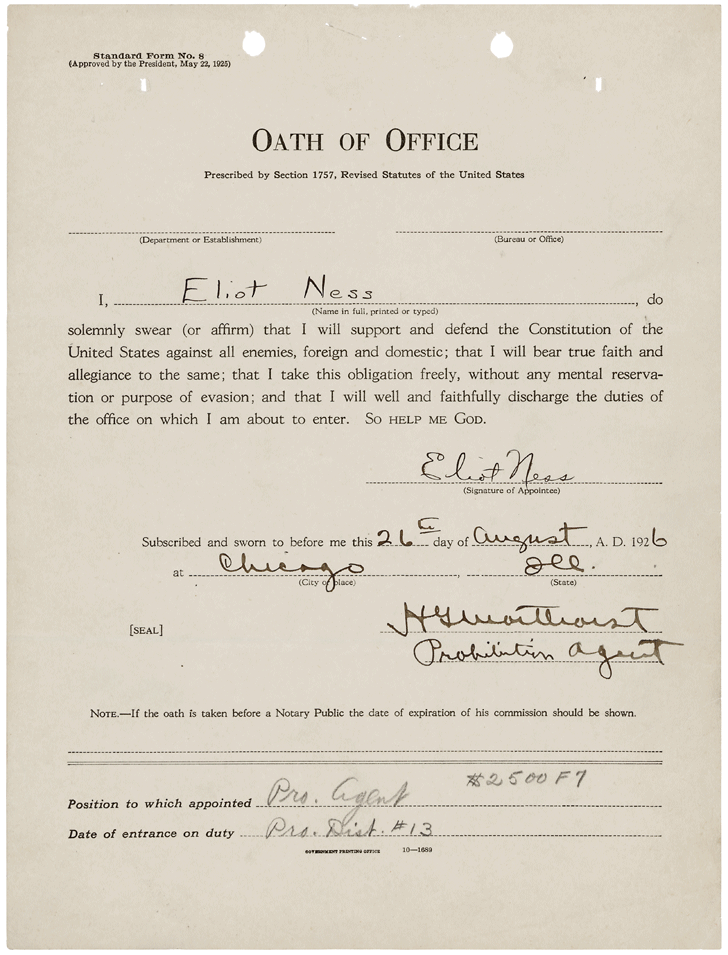 Standard Form No. 8
(Approved by the President, May 22, 1925)
OATH OF OFFICE
Prescribed by Section 1757, Revised Statutes of the United States
(Department or Establishment) (Bureau or Office)
I, Eliot Ness, do
(Name in full, printed or typed)
solemnly swear (or affirm) that I will support and defend the Constitution of the
United States against all enemies, foreign and domestic; that I will bear true faith and
allegiance to the same; that I take this obligation freely, without any mental reserva-
tion or purpose of evasion; and that I will well and faithfully discharge the duties of
the office on which I am about to enter. SO HELP ME GOD.
Eliot Ness
(Signature of Appointee)
Subscribed and sworn to before me this 26th day of August, A. D. 1926
at Chicago, Ill.
(City or place) (State)
[SEAL]
Prohibition Agent
NOTE.—If the oath is taken before a Notary Public the date of expiration of his commission should be shown.
$2500 F7
Position to which appointed Pro. Agent
Date of entrance on duty Pro. Dist. #13
GOVERNMENT PRINTING OFFICE 10—1689